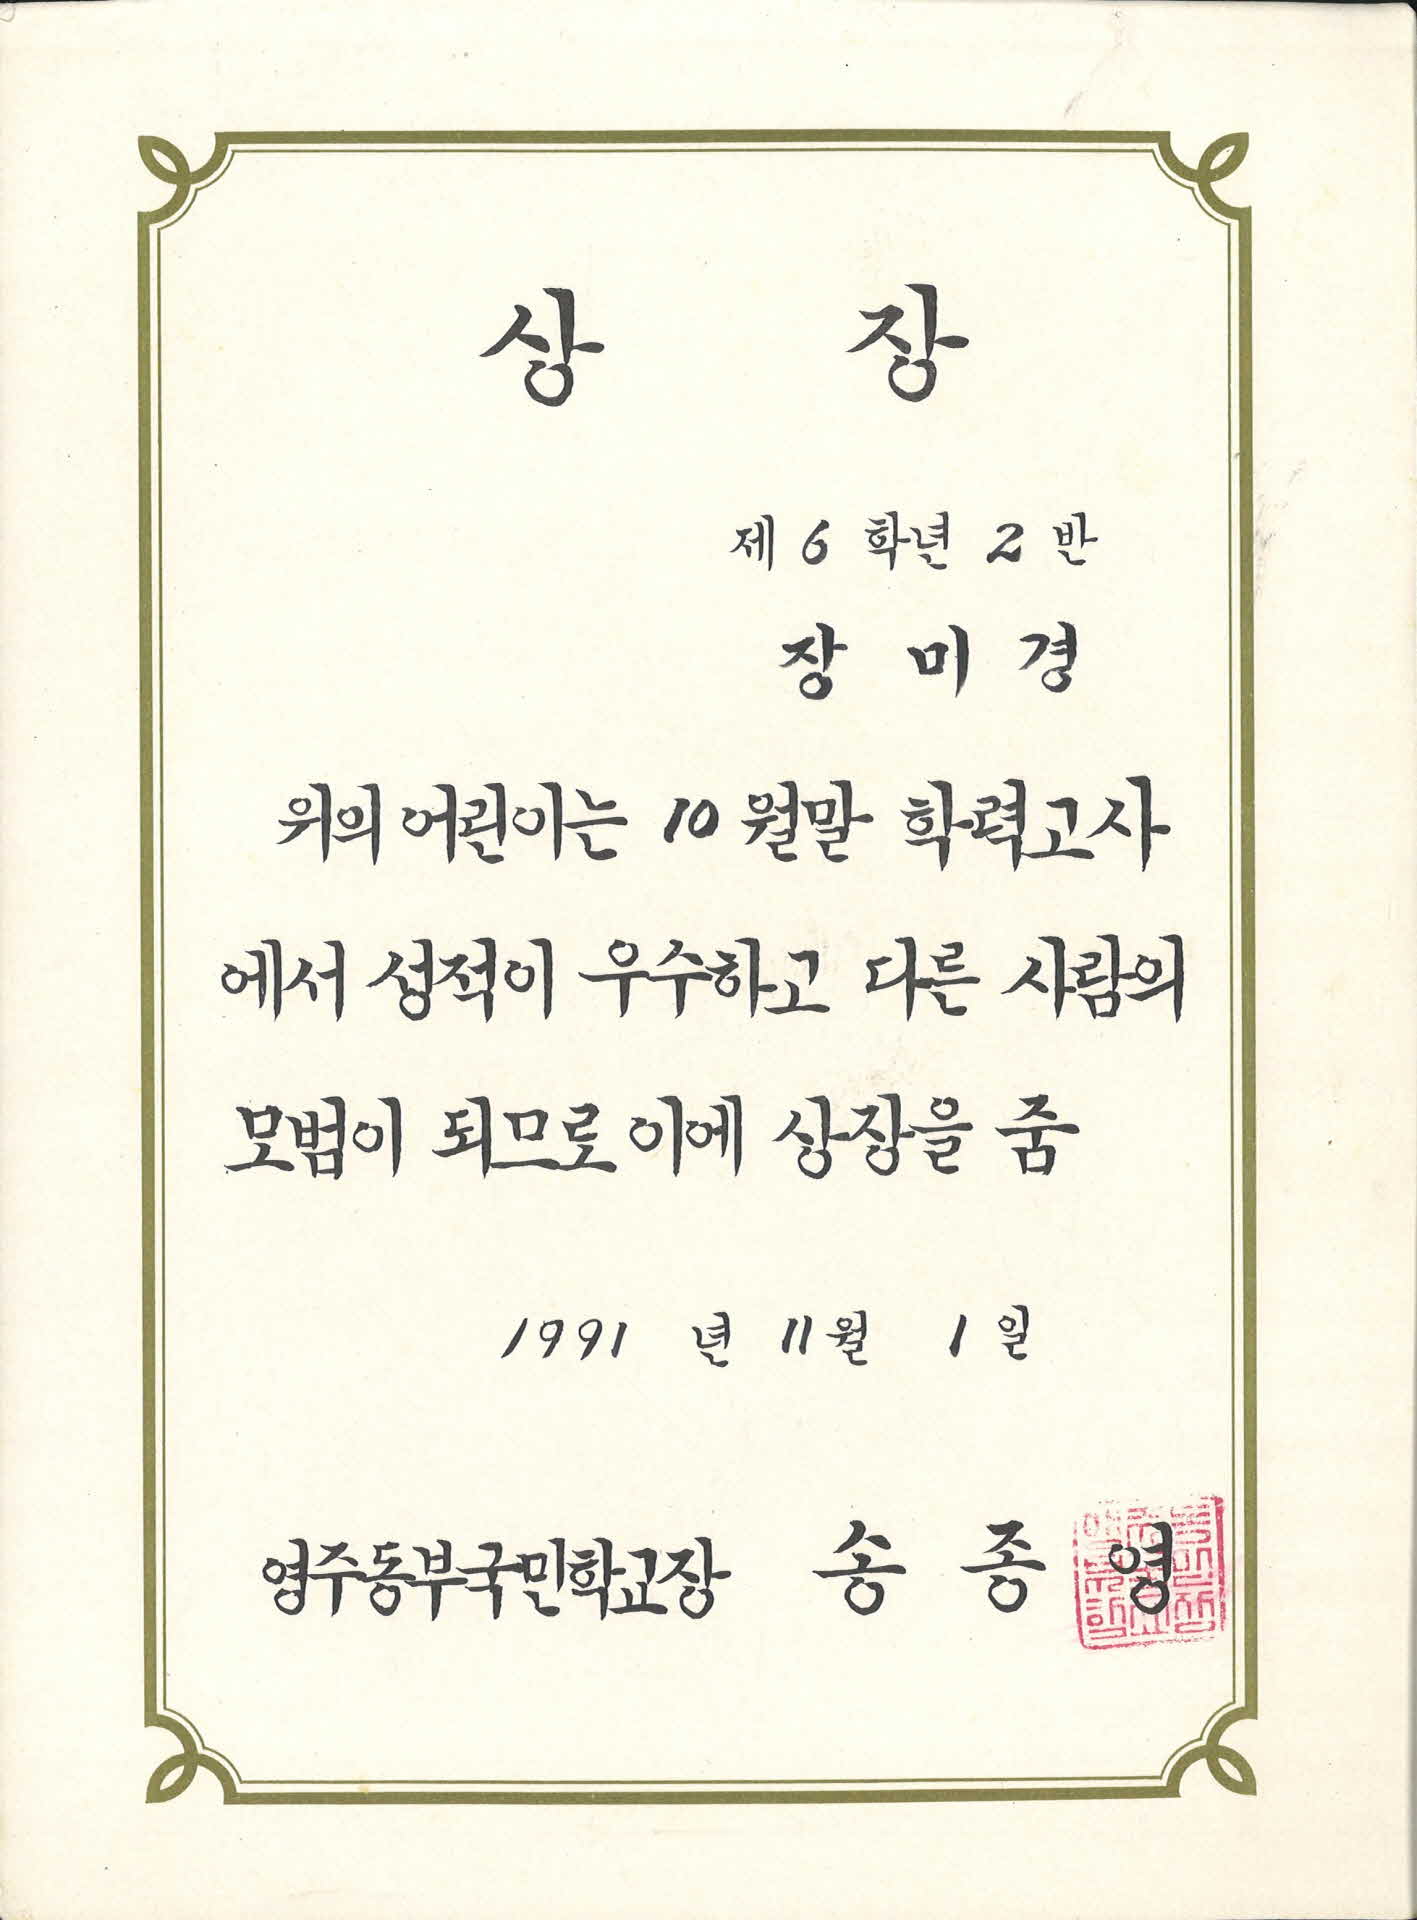 상 장
제 6 학년 2 반
장 미 경
위의 어린이는 10 월말 학력고사
에서 성적이 우수하고 다른 사람의
모범이 되므로 이에 상장을 줌
1991 년 11월 1 일
영주동부국민학교장 송 종 영